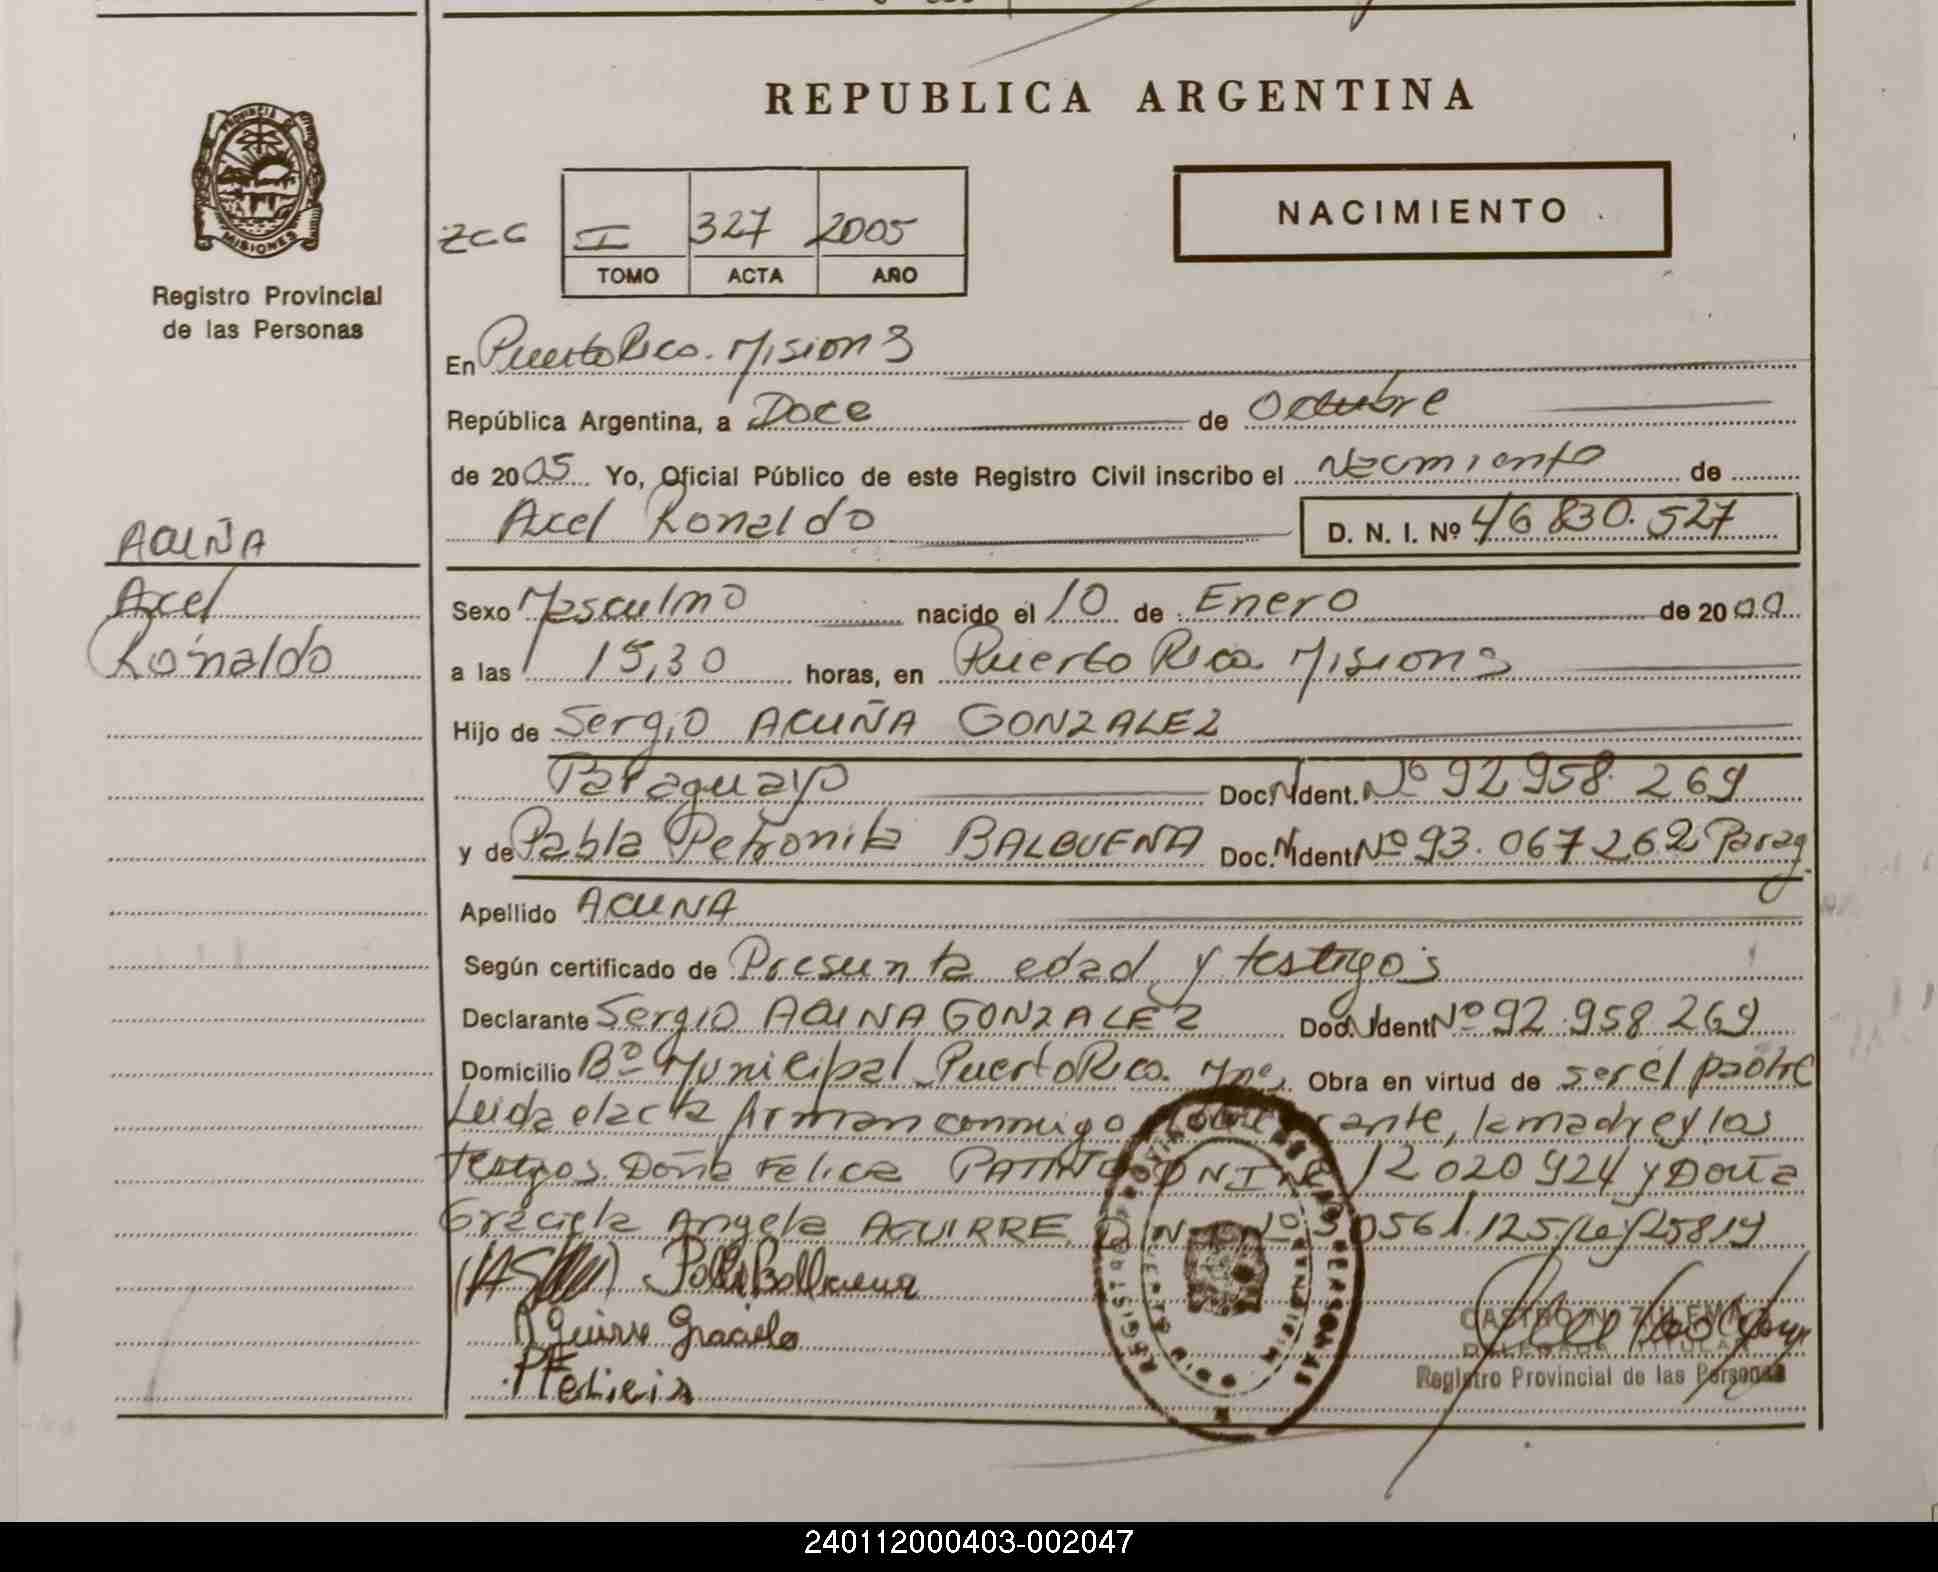 REPUBLICA ARGENTINA
PROVINCIA DE
MISIONES
Registro Provincial
de las Personas
ZCC I 327 2005
TOMO ACTA AÑO
NACIMIENTO
En Puerto Rico. Misiones
República Argentina, a Doce de Octubre
de 2005 Yo, Oficial Público de este Registro Civil inscribo el Nacimiento de
Axel Ronaldo D. N. I. Nº 46 830. 527
ACUÑA
Axel
Ronaldo
Sexo Masculino nacido el 10 de Enero de 2000
a las 15,30 horas, en Puerto Rico. Misiones
Hijo de Sergio ACUÑA GONZALEZ
Paraguayo Doc. Ident. Nº 92 958. 269
y de Pabla Petronila BALBUENA Doc. Ident Nº 93. 067 262 Parag.
Apellido ACUÑA
Según certificado de Presunta edad y testigos
Declarante Sergio ACUÑA GONZALEZ Doc. Ident Nº 92. 958 269
Domicilio Bº Municipal Puerto Rico. Mnes Obra en virtud de ser el padre
Leida el acta firman conmigo, la madre y los
testigos Doña Felica PATIÑO DNI Nº 12 020 924 y Doña
Graciela Angela AGUIRRE DNI Nº 561.125 Ley 25819
Aguirre Graciela
P Felicia
REGISTRO PROVINCIAL DE LAS PERSONAS
DELEGADA TITULAR
Registro Provincial de las Personas
240112000403-002047